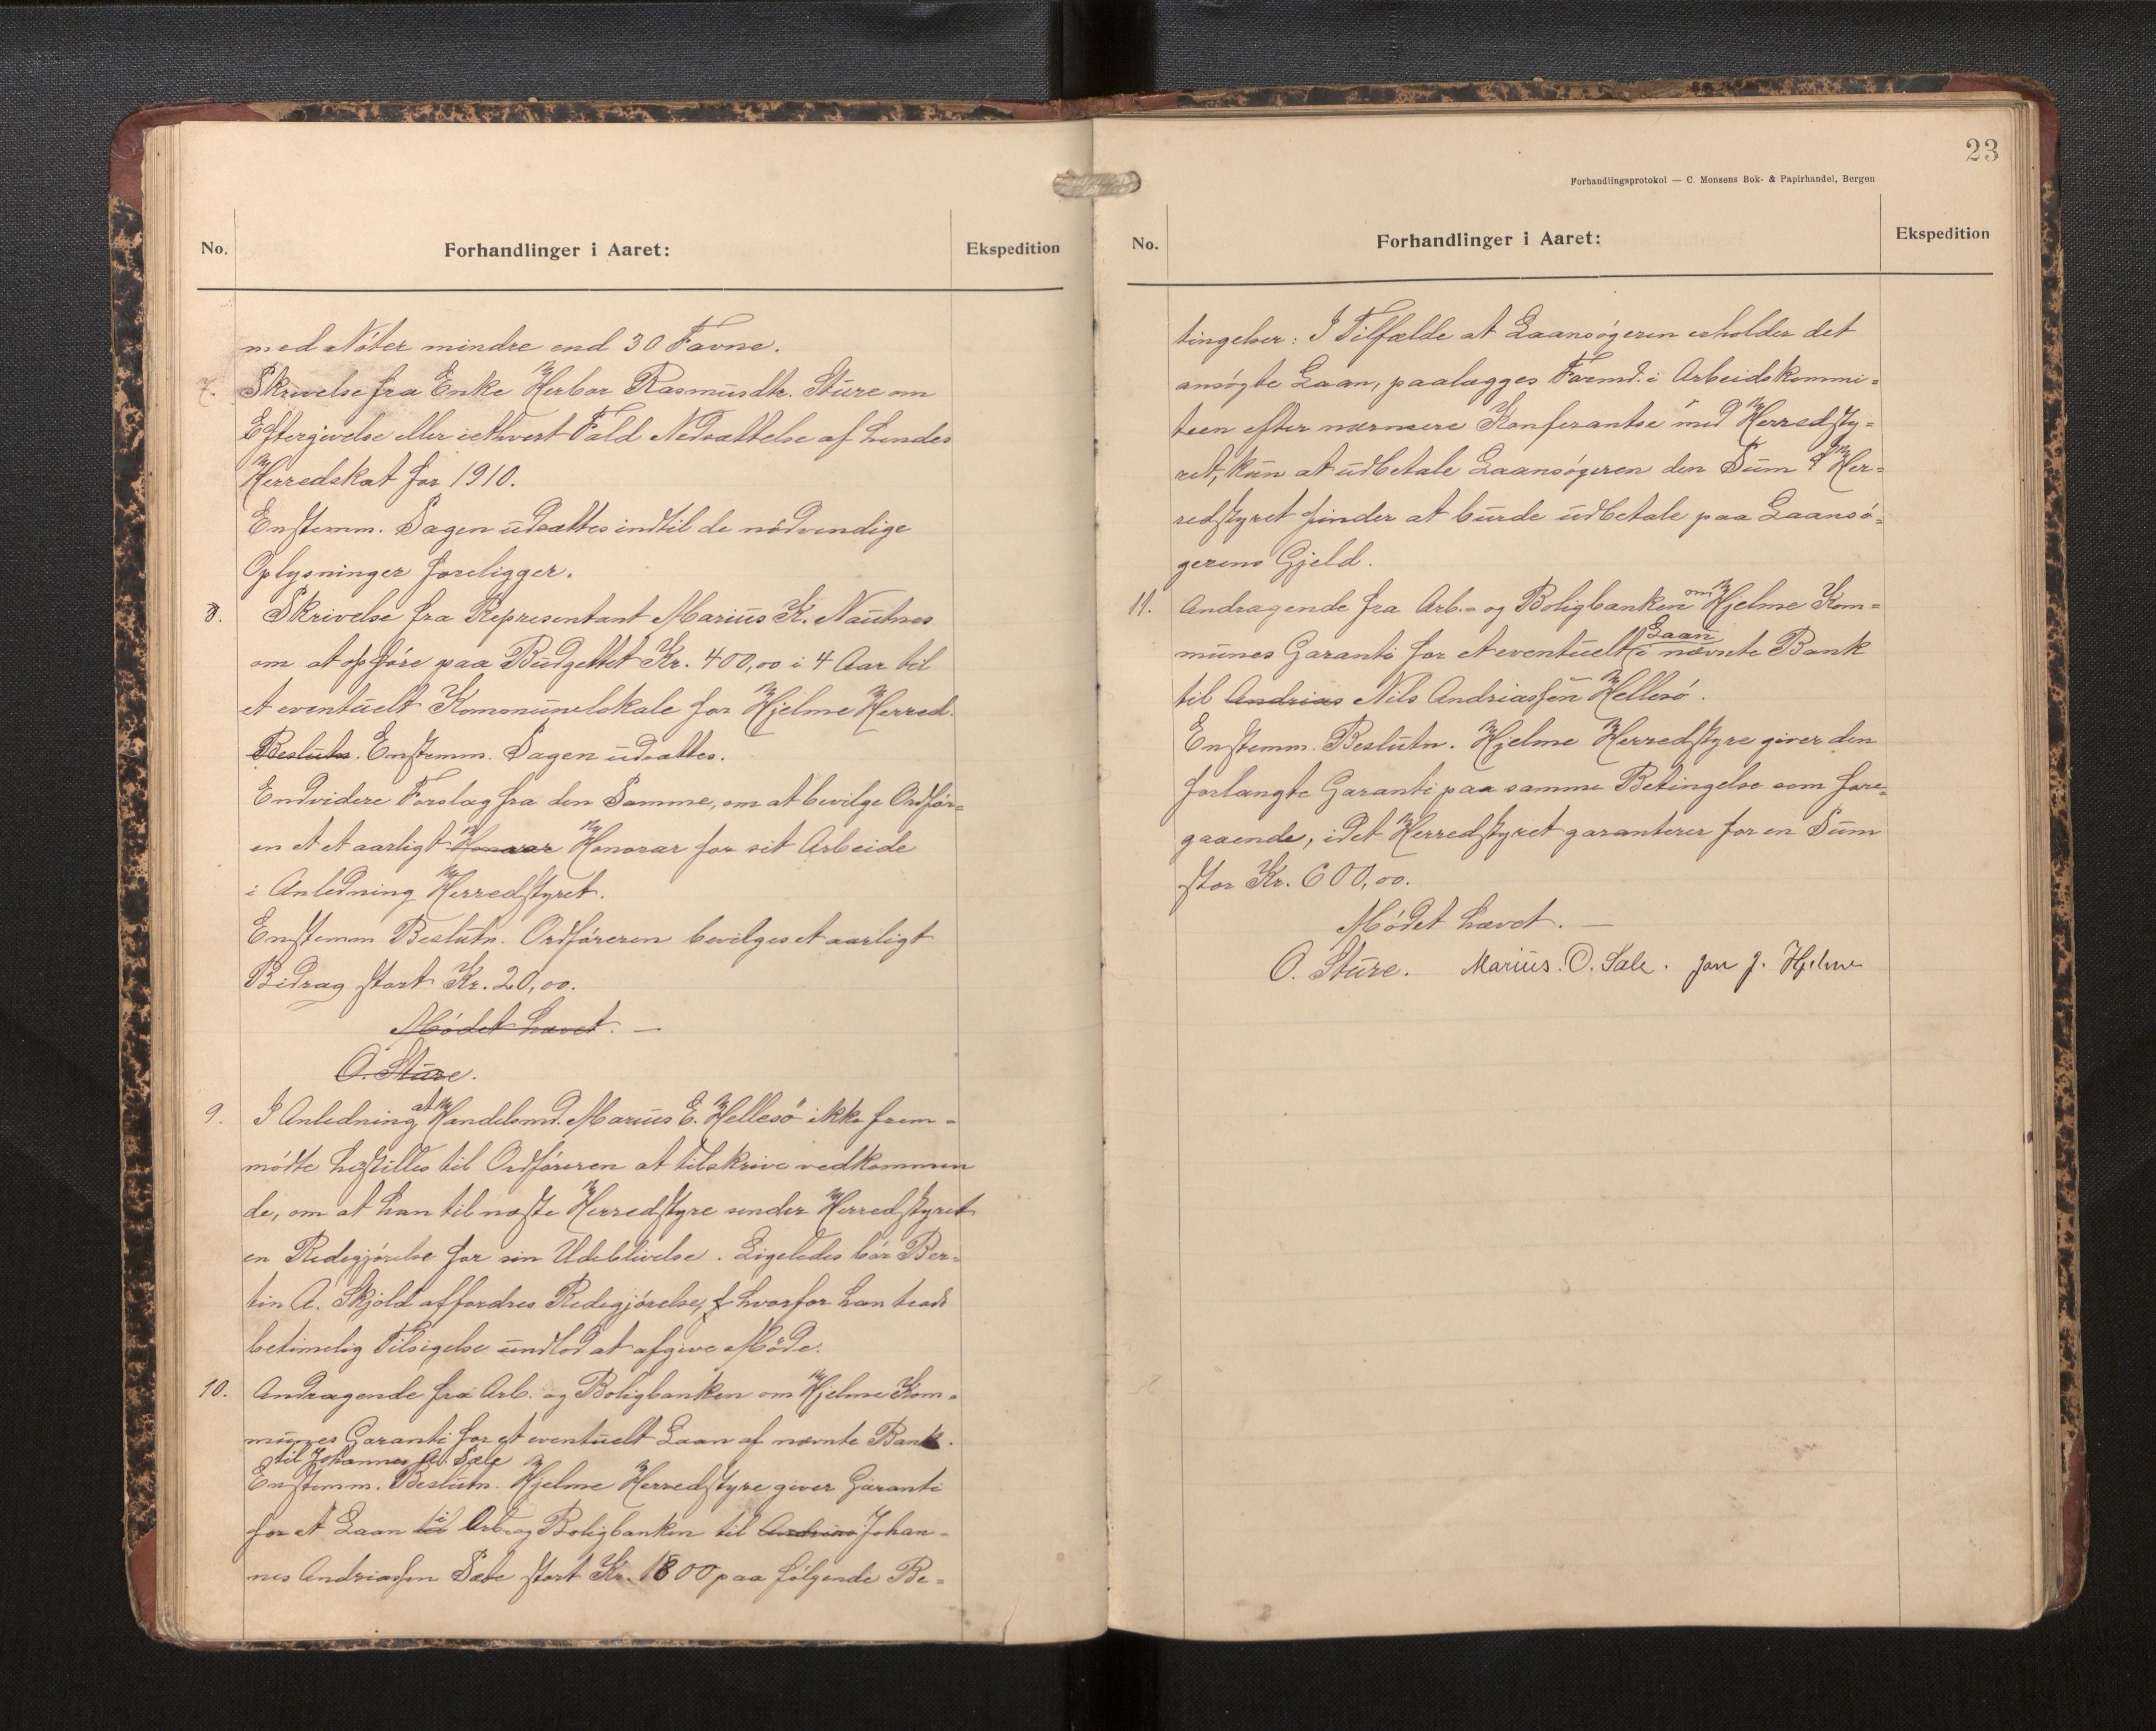 No.
Forhandlinger i Aaret:
Ekspedition
med Nóter mindre end 30 Favne.
7. Skrivelse fra Enke Herbor Rasmusdtr. Sture om
Eftergivelse eller iethvert Fald Nedsættelse af hendes
Herredskat for 1910.
Enstemm. Sagen udsættes indtil de nödvendige
Oplysninger foreligger.
8. Skrivelse fra Representant Marius K. Nautnes
om at opföre paa Budgettet Kr. 400,00 i 4 Aar til
et eventuelt Kommunelokale for Hjelme Herred.
Beslutn. Enstemm. Sagen udsættes.
Endvidere Forslag fra den Samme, om at bevilge Ordför=
en et et aarligt Honorar Honorar for sit Arbeide
i Anledning Herredstyret.
Enstemm Beslutn. Ordföreren bevilges et aarligt
Bidrag stort Kr. 20,00.
Mödet hævet. —
O. Sture.
9. I Anledning at Handelsmd. Marius E. Hellesö ikke frem=
mödte hestilles til Ordföreren at tilskrive vedkommen
de, om at han til næste Herredstyre sender Herredstyret
en Redegjörelse for sin Udeblivelse. Ligeledes bör Ber=
tin A. Skjold affordres Redegjörelse, f hvorfor han trods
betimelig Tilsigelse undlod at afgive Möde.
10. Andragende fra Arb. og Boligbanken om Hjelme Kom=
munes Garanti for et eventuelt Laan af nævnte Bank.
til Johannes A. Sæle
Enstemm. Beslutn. Hjelme Herredstyre giver Garanti
for et Laan til i Arb. og Boligbanken til Andrias Johan=
nes Andriassen Sæle stort Kr. 1800 paa fölgende Be=
23
Forhandlingsprotokol — C. Monsens Bok- & Papirhandel, Bergen
No.
Forhandlinger i Aaret:
Ekspedition
tingelser: I Tilfælde at Laansögeren erholder det
ansögte Laan, paalægges Formd. i Arbeidskommi=
teen efter nærmere Konferantse med Herredsty=
ret, kun at udbetale Laansögeren den Sum Her=
redstyret finder at burde udbetale paa Laansö=
gerens Gjeld.
11. Andragende fra Arb.- og Boligbanken om Hjelme Kom=
munes Garanti for et eventuelt Laan i nævnte Bank
til Andrias Nils Andriassen Hellesö.
Enstemm. Beslutn. Hjelme Herredstyre giver den
forlangte Garanti paa samme Betingelse som fore=
gaaende, idet Herredstyret garanterer for en Sum
stor Kr. 600,00.
Mödet hævet. —
O. Sture. Marius. O. Sæle. Jan J. Hjelme